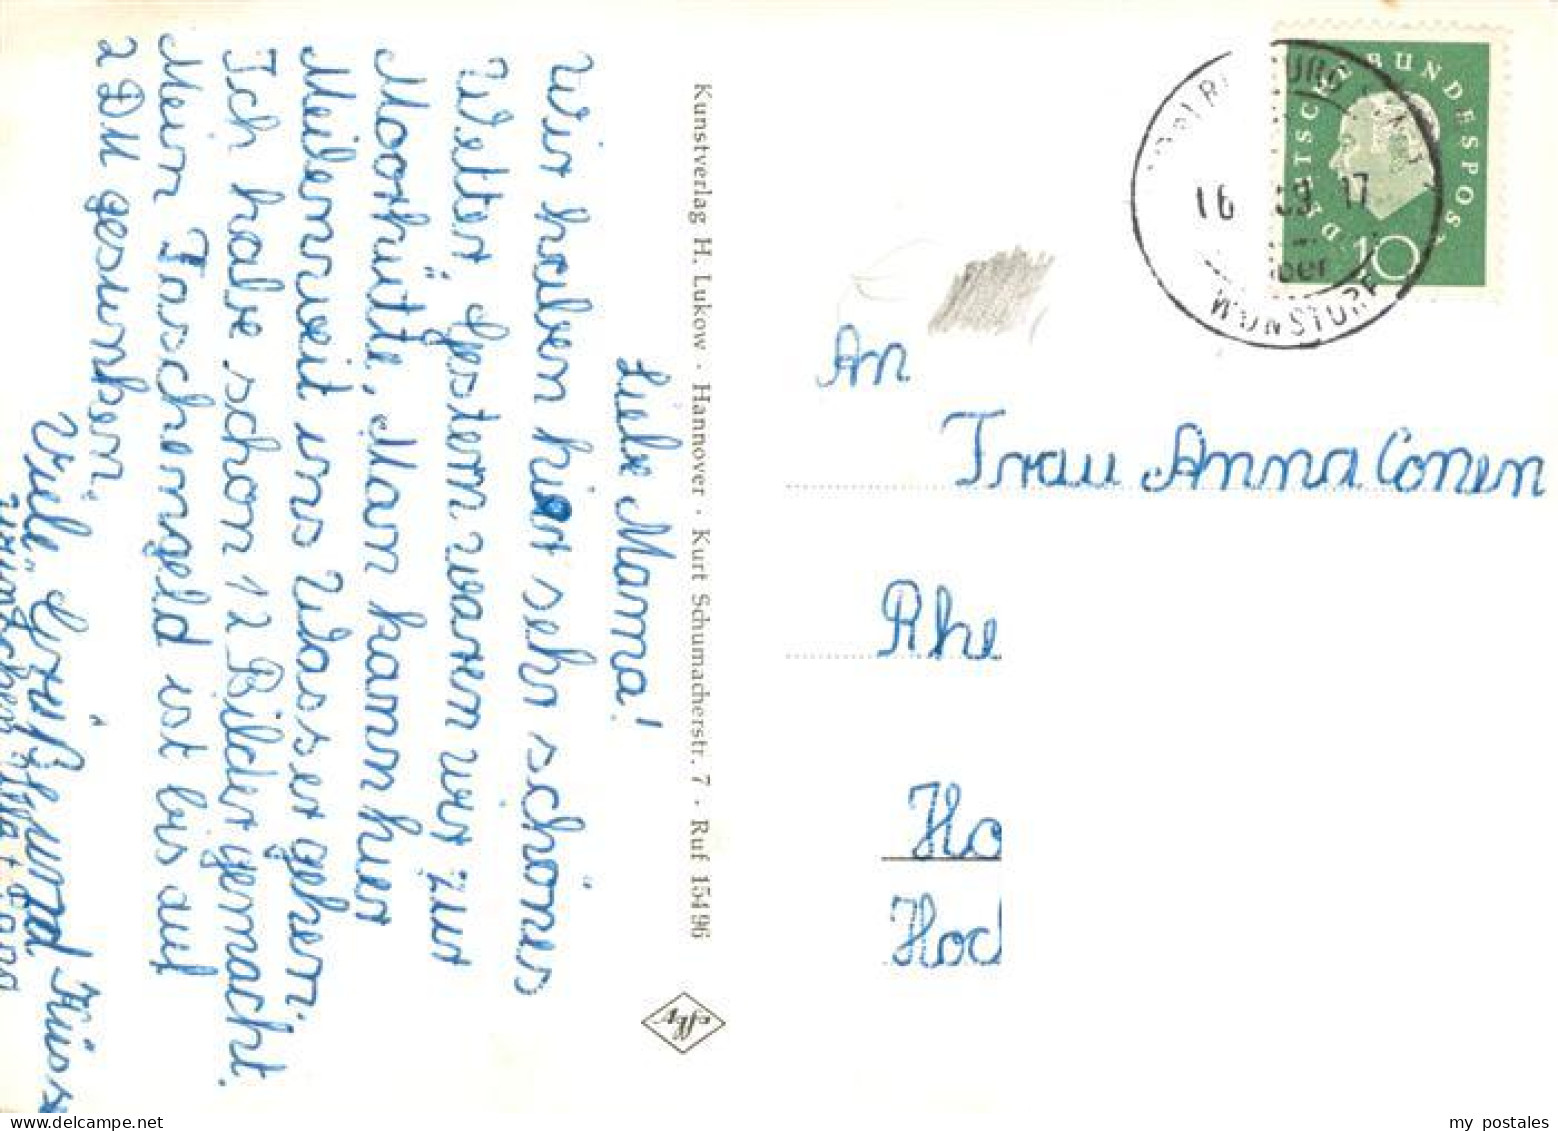 Liebe Mama!
Wir haben hier sehr schönes
Wetter, Gestern waren wir zur
Moorhütte, Man kann hier
Meilenweit ins Wasser gehen,
Ich habe schon 12 Bilder gemacht.
Mein Taschengeld ist bis auf
2 DM gesunken.
Viele Grüße und Küsse
Kunstverlag H. Lukow · Hannover · Kurt Schumacherstr. 7 · Ruf 15496
DEUTSCHE BUNDESPOST
10
16 59 17
WUNSTORF
An
Frau Anna Conen
Rhe
Ho
Hoc
my postales